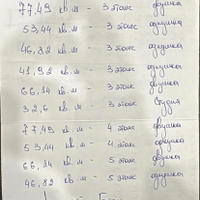 77,49 кв.м - 3 этаж двушка
53,44 кв.м - 3 этаж однушка
46,82 кв.м - 3 этаж однушка
41,92 кв.м - 3 этаж однушка
66,14 кв.м - 3 этаж двушка
32,6 кв.м - 3 этаж студия
77,49 кв.м - 4 этаж двушка
53,44 кв.м - 4 этаж однушка
66,14 кв.м - 5 этаж двушка
46,82 кв.м - 5 этаж однушка